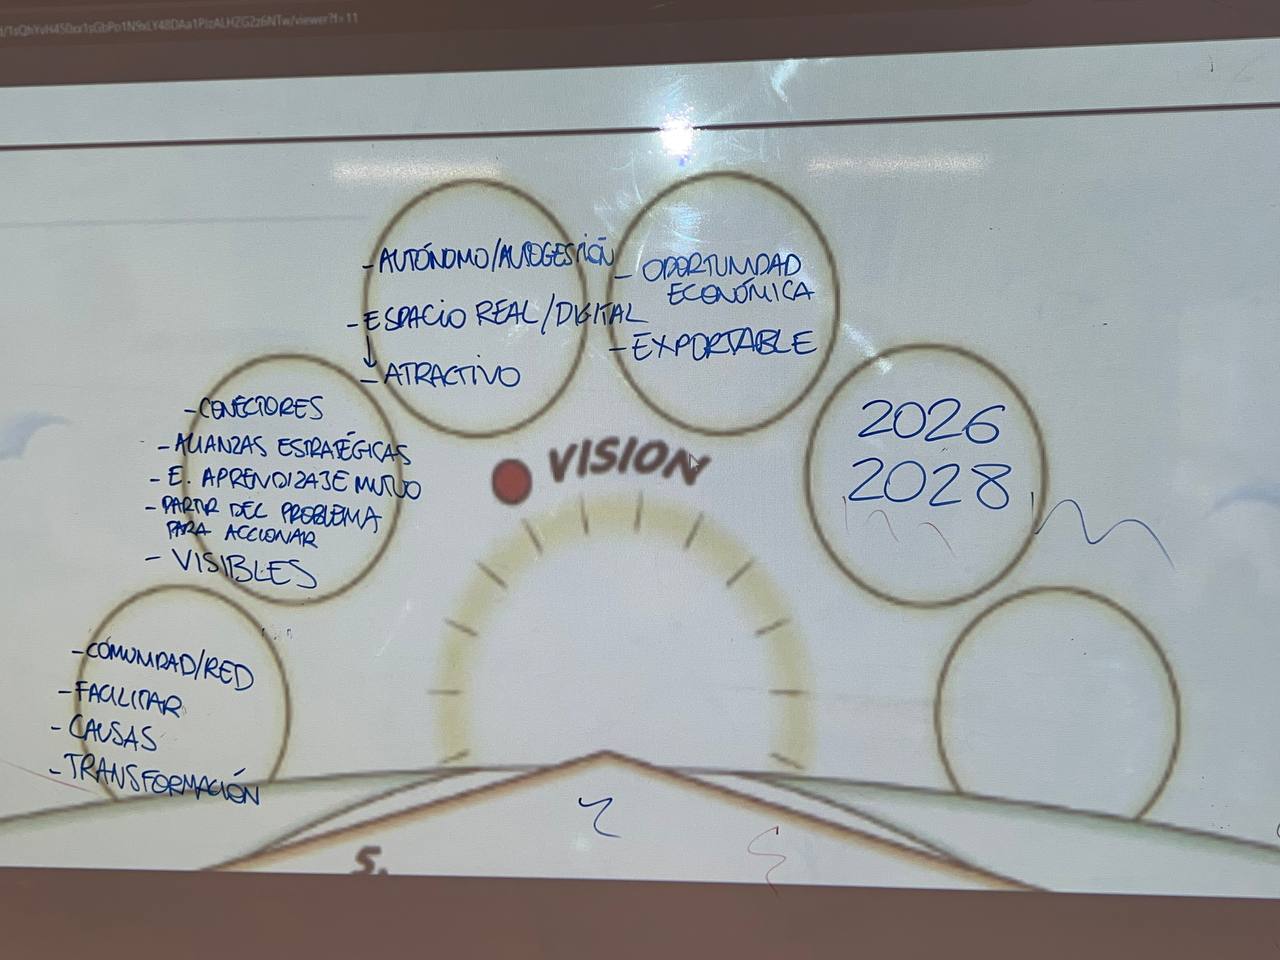 VISION
- COMUNIDAD/RED
- FACILITAR
- CAUSAS
- TRANSFORMACIÓN
- CONECTORES
- ALIANZAS ESTRATÉGICAS
- E. APRENDIZAJE MUTUO
- PARTIR DEL PROBLEMA
PARA ACCIONAR
- VISIBLES
- AUTÓNOMO/AUTOGESTIÓN
- ESPACIO REAL/DIGITAL
- ATRACTIVO
- OPORTUNIDAD
ECONÓMICA
- EXPORTABLE
2026
2028
5.